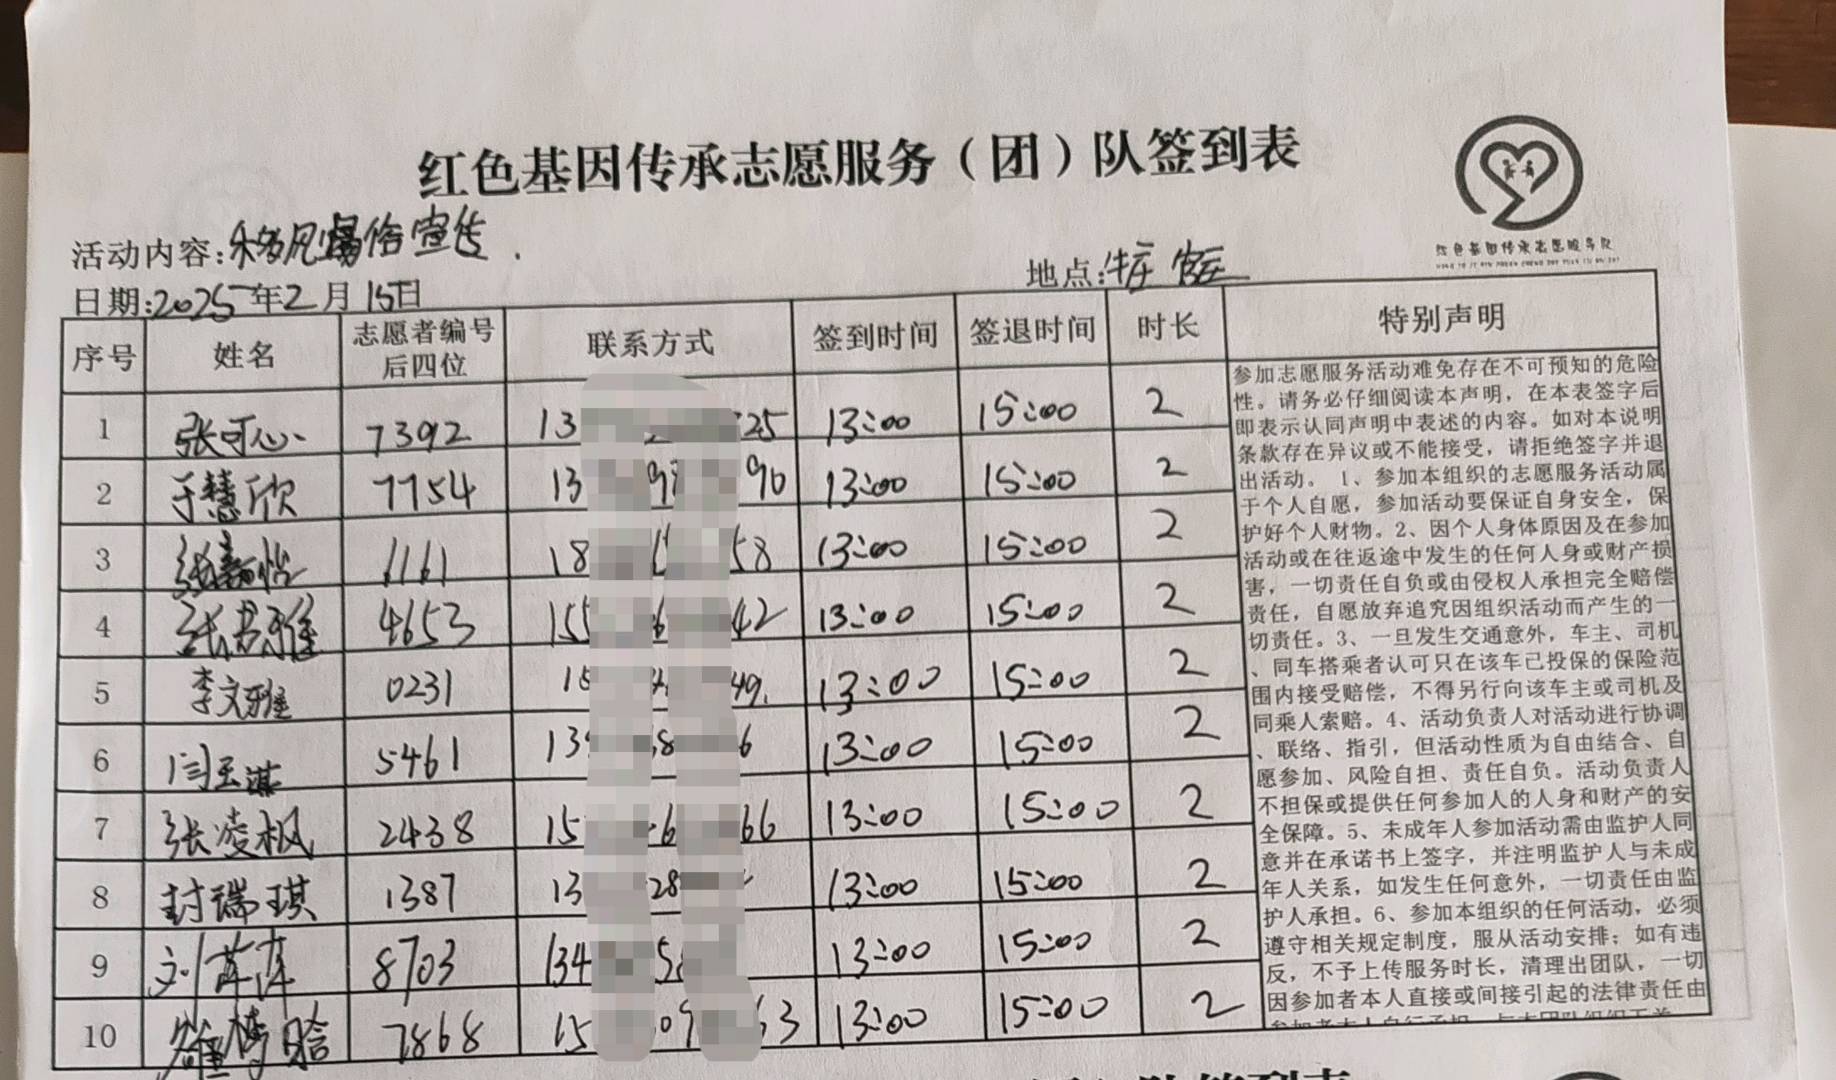 红色基因传承志愿服务（团）队签到表
红色基因传承志愿服务队
活动内容:移风易俗宣传.
地点:牛庄
日期:2025年2月15日
序号 姓名 志愿者编号后四位 联系方式 签到时间 签退时间 时长 特别声明
1 张可心 7392 13 25 13:00 15:00 2
2 于慧欣 7754 13 96 13:00 15:00 2
3 张嘉怡 6161 18 58 13:00 15:00 2
4 张书雅 4653 155 42 13:00 15:00 2
5 李文雅 0231 15 49. 13:00 15:00 2
6 闫玉淇 5461 13 6 13:00 15:00 2
7 张凌枫 2438 15 66 13:00 15:00 2
8 封瑞琪 1387 13 28 13:00 15:00 2
9 刘萍萍 8703 134 13:00 15:00 2
10 7868 15 09 63 13:00 15:00 2
参加志愿服务活动难免存在不可预知的危险
性。请务必仔细阅读本声明，在本表签字后
即表示认同声明中表述的内容。如对本说明
条款存在异议或不能接受，请拒绝签字并退
出活动。 1、参加本组织的志愿服务活动属
于个人自愿，参加活动要保证自身安全，保
护好个人财物。2、因个人身体原因及在参加
活动或在往返途中发生的任何人身或财产损
害，一切责任自负或由侵权人承担完全赔偿
责任，自愿放弃追究因组织活动而产生的一
切责任。3、一旦发生交通意外，车主、司机
、同车搭乘者认可只在该车已投保的保险范
围内接受赔偿，不得另行向该车主或司机及
同乘人索赔。4、活动负责人对活动进行协调
、联络、指引，但活动性质为自由结合、自
愿参加、风险自担、责任自负。活动负责人
不担保或提供任何参加人的人身和财产的安
全保障。5、未成年人参加活动需由监护人同
意并在承诺书上签字，并注明监护人与未成
年人关系，如发生任何意外，一切责任由监
护人承担。6、参加本组织的任何活动，必须
遵守相关规定制度，服从活动安排；如有违
反，不予上传服务时长，清理出团队，一切
因参加者本人直接或间接引起的法律责任由